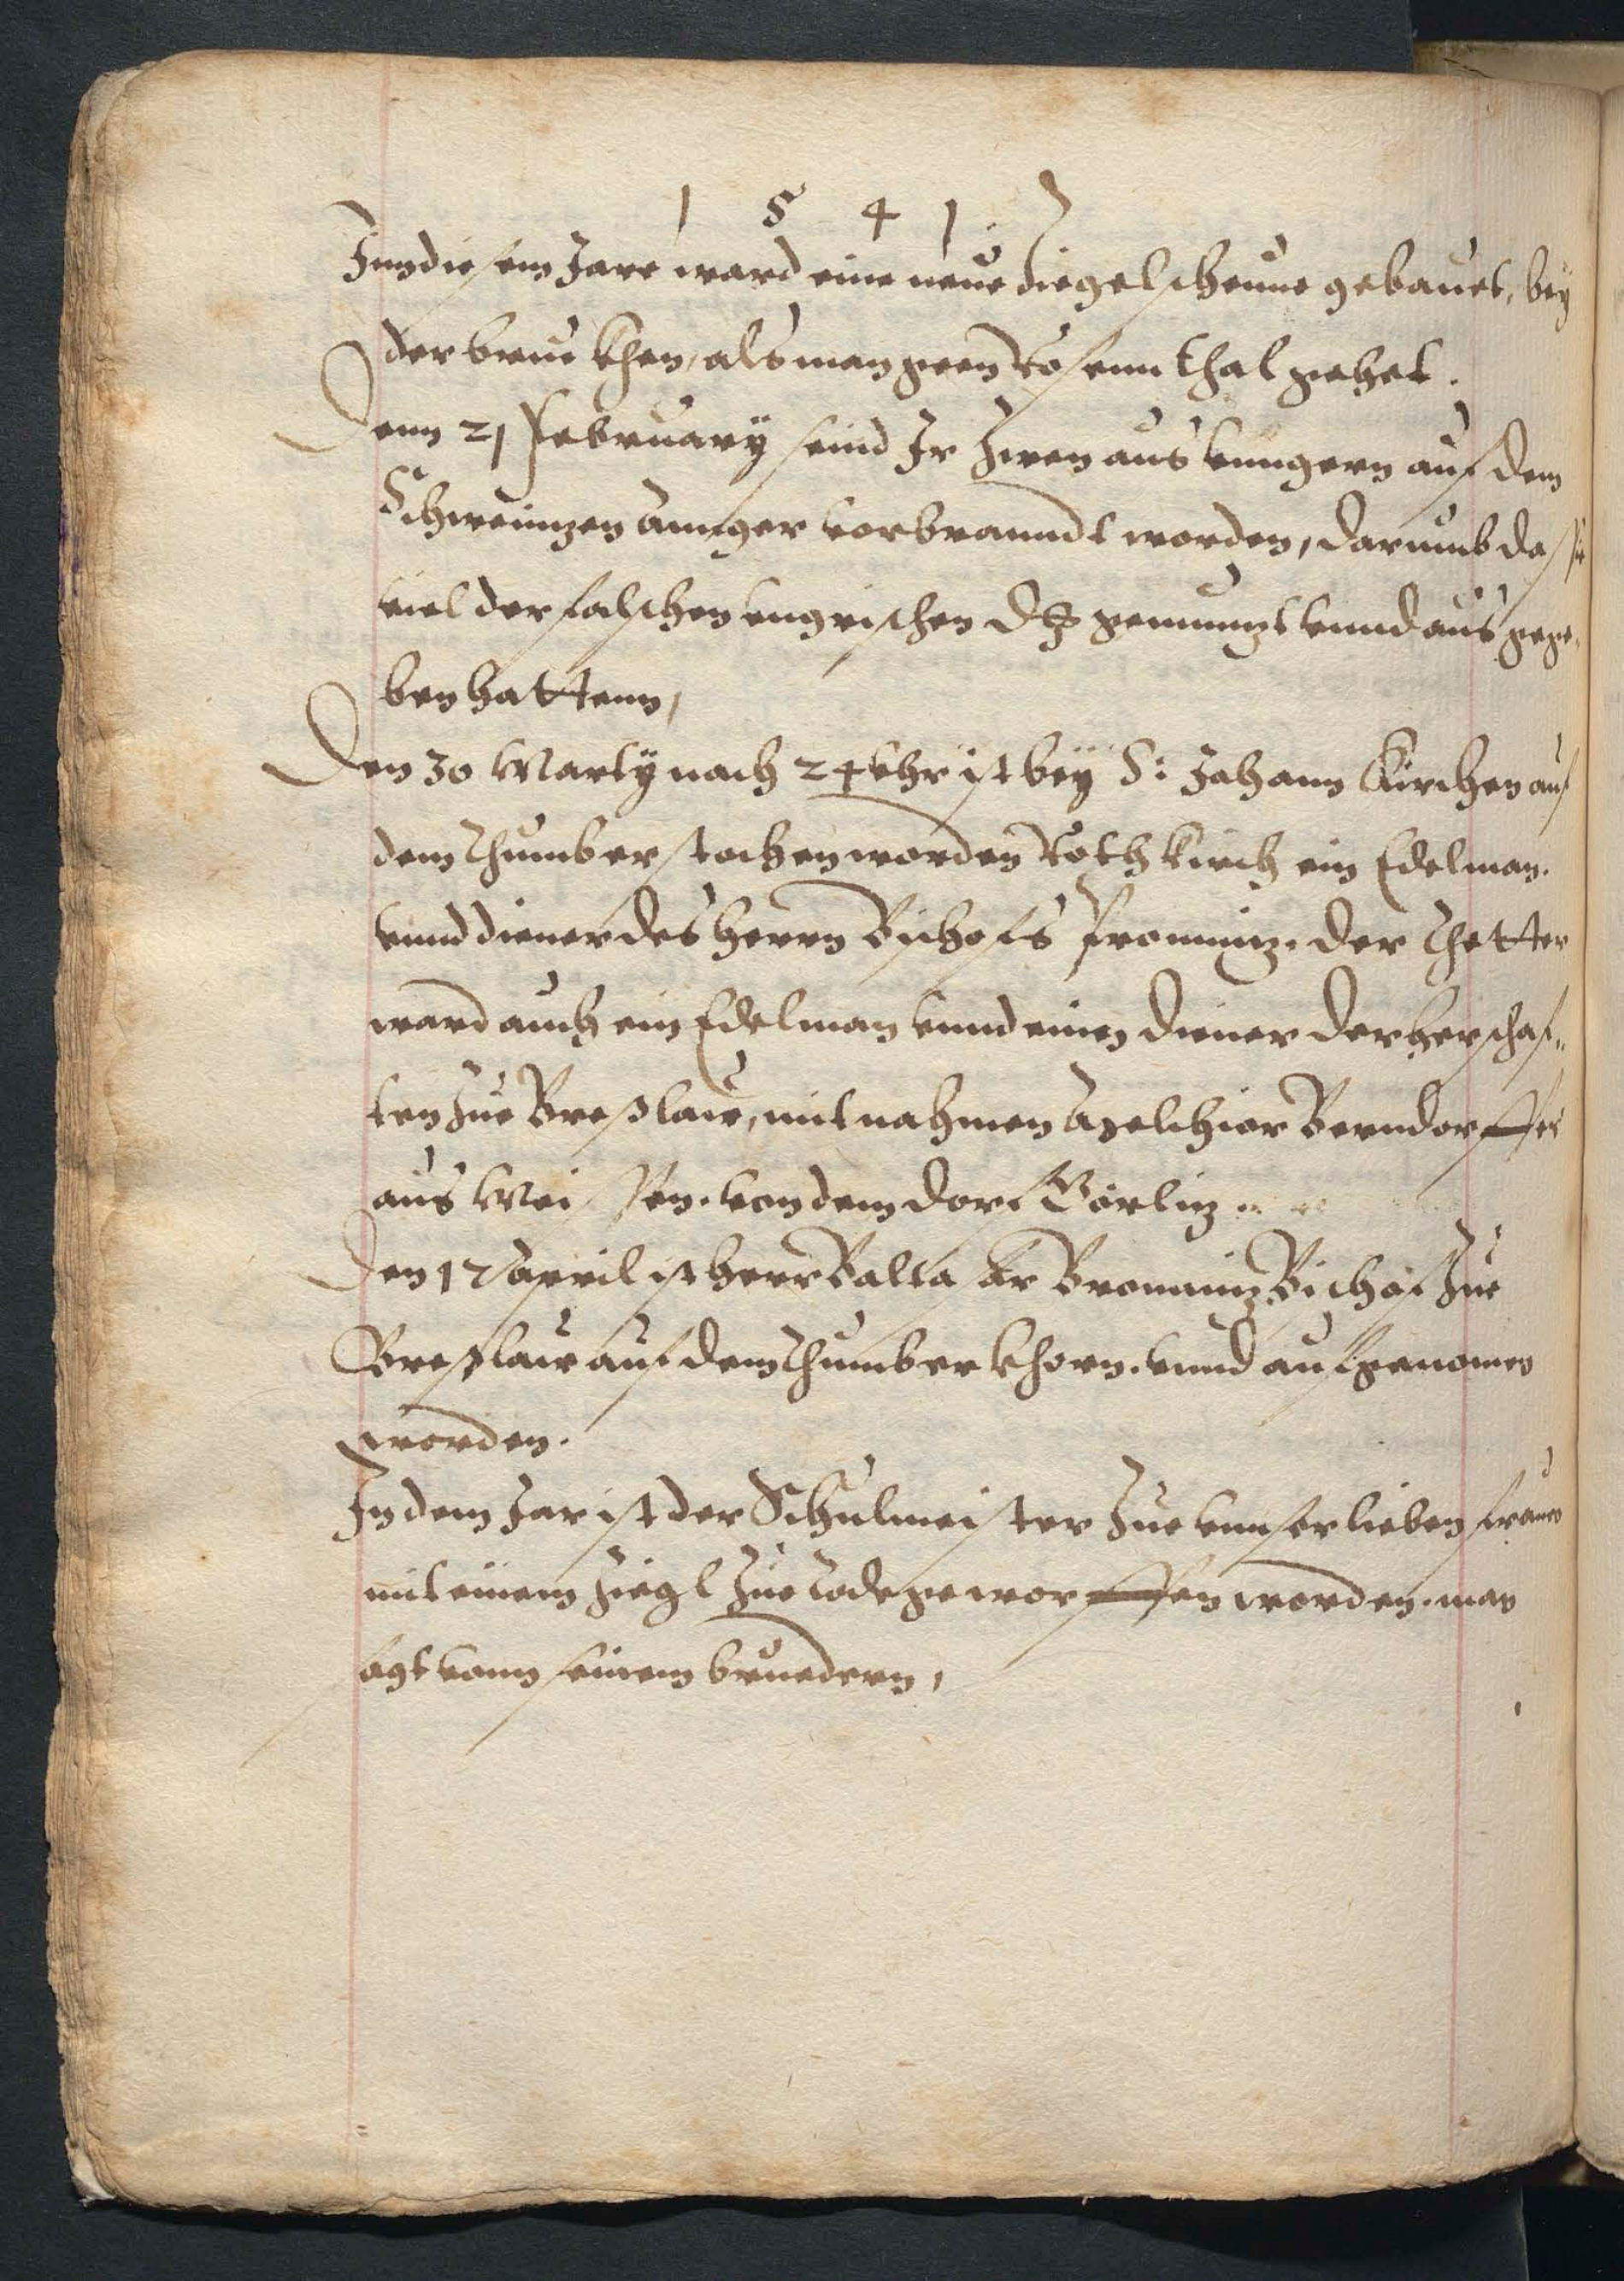 1 5 4 1.
Inn diesem Jare ward eine neue Ziegelscheune gebauet, bey
der bruckhen, als man geen Rosennthal gehet.
Denn 21 February seind Ir Zwen aus vungern auf dem
Schweinzen annger vorbranndt worden, darumb das sie
viel der falschen vngrischen gemunzt vnnd aus gege-
ben hattenn,
Den 30 Marty nach 24 vhr ist bey S: Johann Kirchen auf
dem Thumb erstochen worden Rothkirch ein Edelman.
vnnd diener des herrn Bischofs Promniz. der Thetter
ward auch ein Edelman vnnd einen diener der herschaf-
ten Zue Breßlaw, mit nahmen Melchior Berndorffer
aus Meissen. von dem dorf Görliz.
Den 17 April ist herr Baltasar Bromniz Bischof Zue
Breßlaw auf dem Thumb erkhorn. vnnd aufgenomen
worden.
In dem Jar ist der Schulmeister Zue vnnser lieben frauen
mit einem Ziegl Zue tode geworffen worden. man
sagt vonn seinem bruedern,